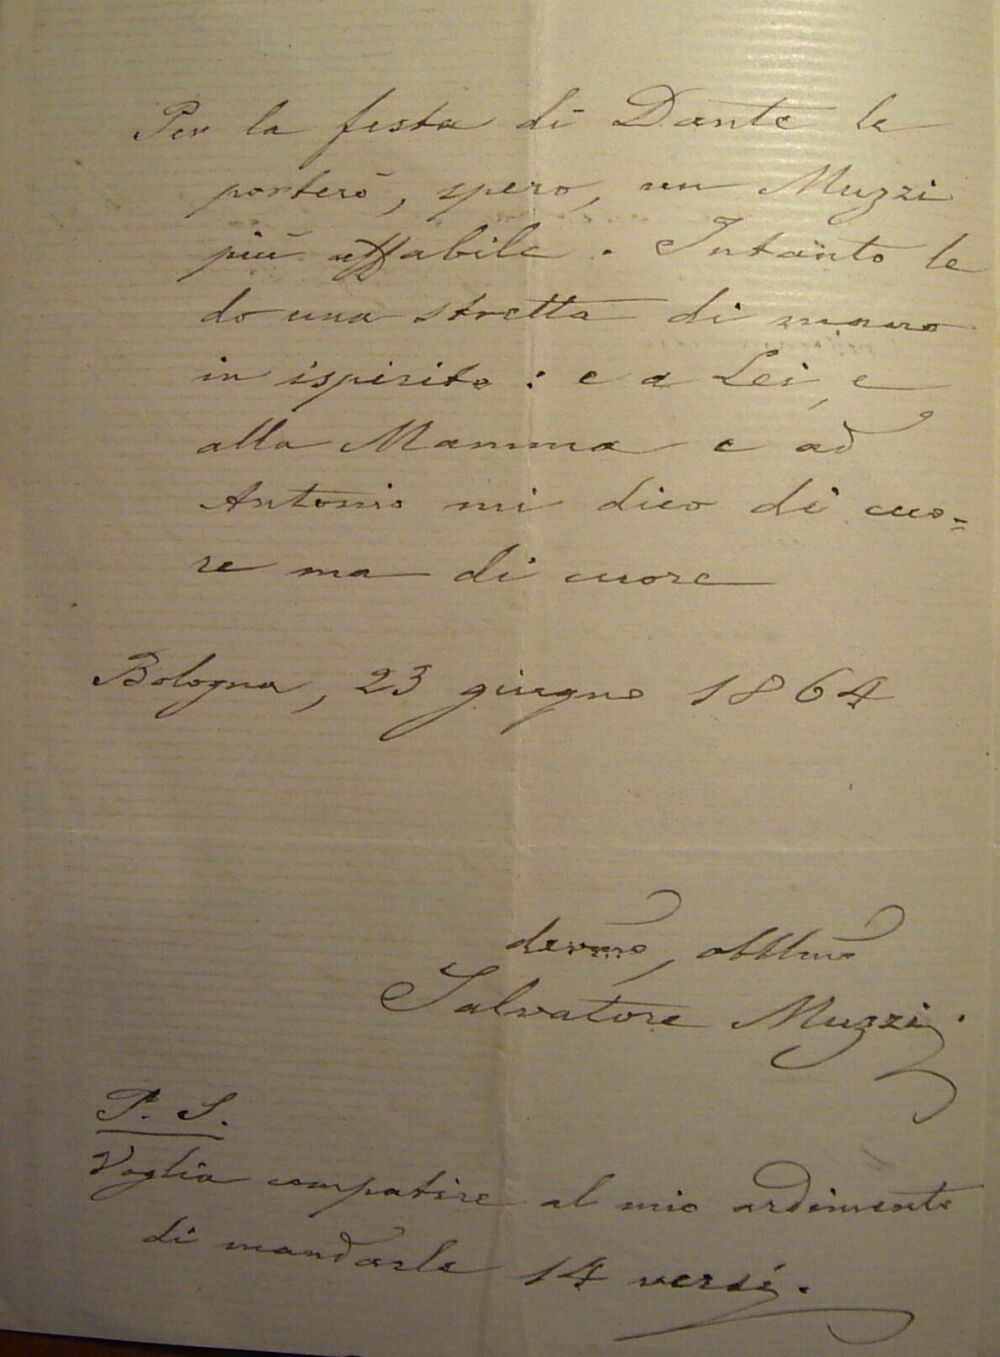 Per la festa di Dante le
porterò, spero, un Muzzi
più affabile. Intanto le
do una stretta di mano
in ispirito: e a Lei, e
alla Mamma e ad
Antonio mi dico di cuo=
re ma di cuore
Bologna, 23 giugno 1864
devmo, obblmo
Salvatore Muzzi.
P. S.
Voglia compatire al mio ardimento
di mandarle 14 versi.